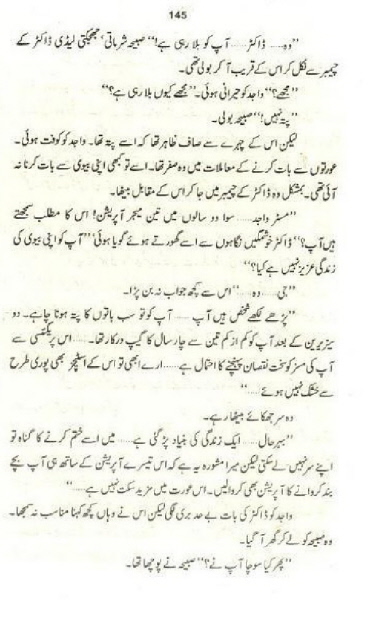 145
”وہ...... ڈاکٹر...... آپ کو بلا رہی ہے!“ صبیحہ شرماتی‘ جھجکتی لیڈی ڈاکٹر کے
چیمبر سے نکل کر اس کے قریب آ کر بولی تھی۔
”مجھے؟“ واجد کو حیرانی ہوئی۔ ”مجھے کیوں بلا رہی ہے؟“
”پتہ نہیں!“ صبیحہ بولی۔
لیکن اس کے چہرے سے صاف ظاہر تھا کہ اسے پتہ تھا۔ واجد کو کوفت ہوئی۔
عورتوں سے بات کرنے کے معاملات میں وہ صفر تھا۔ اسے تو کبھی اپنی بیوی سے بات کرنا نہ
آئی تھی۔ بمشکل وہ ڈاکٹر کے چیمبر میں جا کر اس کے مقابل بیٹھا۔
”مسٹر واجد...... سوا دو سالوں میں تین میجر آپریشن! اس کا مطلب سمجھتے
ہیں آپ؟“ ڈاکٹر خوشمگیں نگاہوں سے اسے گھورتے ہوئے گویا ہوئی‘ ”آپ کو اپنی بیوی کی
زندگی عزیز نہیں ہے کیا؟“
”جی...... وہ......“ اس سے کچھ جواب نہ بن پڑا۔
”پڑھے لکھے شخص ہیں آپ...... آپ کو تو سب باتوں کا پتہ ہونا چاہیے۔ دو
سیزیرین کے بعد آپ کو کم از کم تین سے چار سال کا گیپ درکار تھا۔...... اس پریگننسی سے
آپ کی مسز کو سخت نقصان پہنچنے کا احتمال ہے...... ارے ابھی تو اس کے اسٹیچز بھی پوری طرح
سے خشک نہیں ہوئے......“
وہ سر جھکائے بیٹھا رہے۔
”بہرحال...... ایک زندگی کی بنیاد پڑ گئی ہے...... میں اسے ختم کرنے کا گناہ تو
اپنے سر نہیں لے سکتی لیکن میرا مشورہ یہ ہے کہ اس تیسرے آپریشن کے ساتھ ہی آپ بچے
بند کروانے کا آپریشن بھی کروالیں۔ اس عورت میں مزید سکت نہیں ہے......“
واجد کو ڈاکٹر کی بات بے حد بری لگی لیکن اس نے وہاں کچھ کہنا مناسب نہ سمجھا۔
وہ صبیحہ کو لے کر گھر آ گیا۔
”پھر کیا سوچا آپ نے؟“ صبیحہ نے پوچھا تھا۔